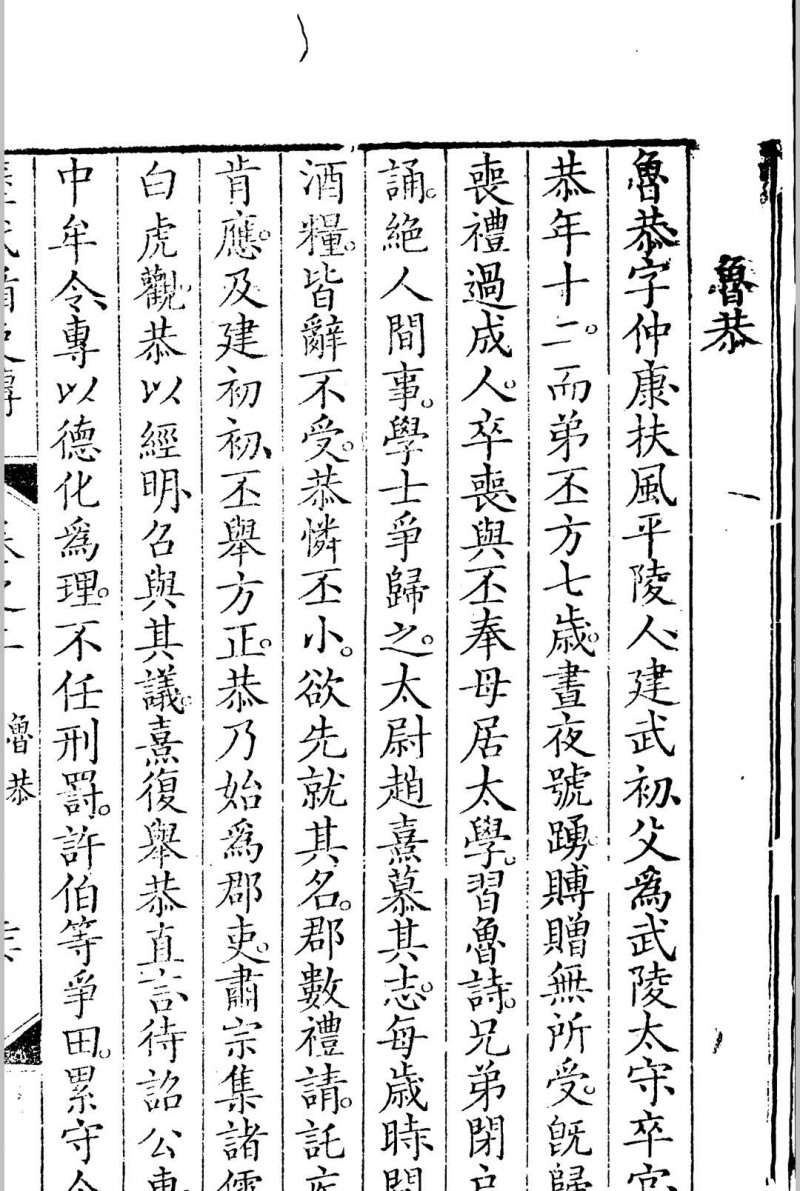 魯恭
魯恭字仲康、扶風平陵人、建武初、父爲武陵太守、卒官
恭年十二。而弟丕方七歲。晝夜號踴。賻贈無所受。既歸
喪禮過成人。卒喪、與丕奉母居太學。習魯詩。兄弟閉戶
誦。絕人間事。學士爭歸之。太尉趙熹慕其志。每歲時問
酒糧。皆辭不受。恭憐丕小。欲先就其名。郡數禮請。託疾
肯應。及建初初、丕舉方正。恭乃始爲郡吏。肅宗集諸儒
白虎觀。恭以經明、召與其議。熹復舉恭直言待詔公車
中牟令、專以德化爲理。不任刑罰。許伯等爭田。累守令
歷代循吏傳 卷之二 魯恭